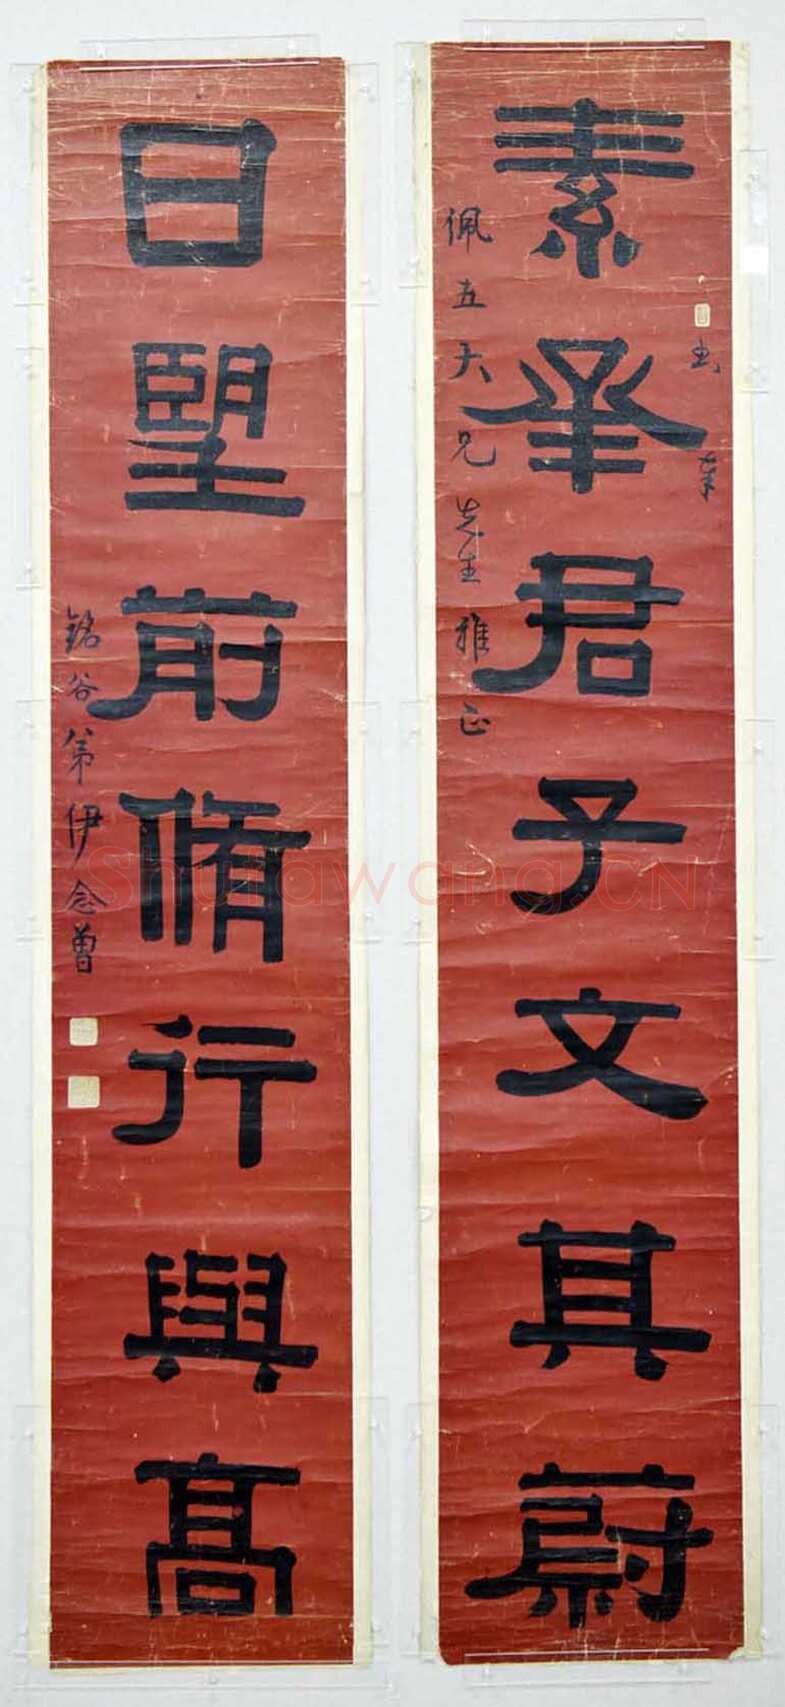 素承君子文其蔚
佩五大兄先生雅正
日望前脩行與高
銘谷弟伊念曾
Shufawang.CN